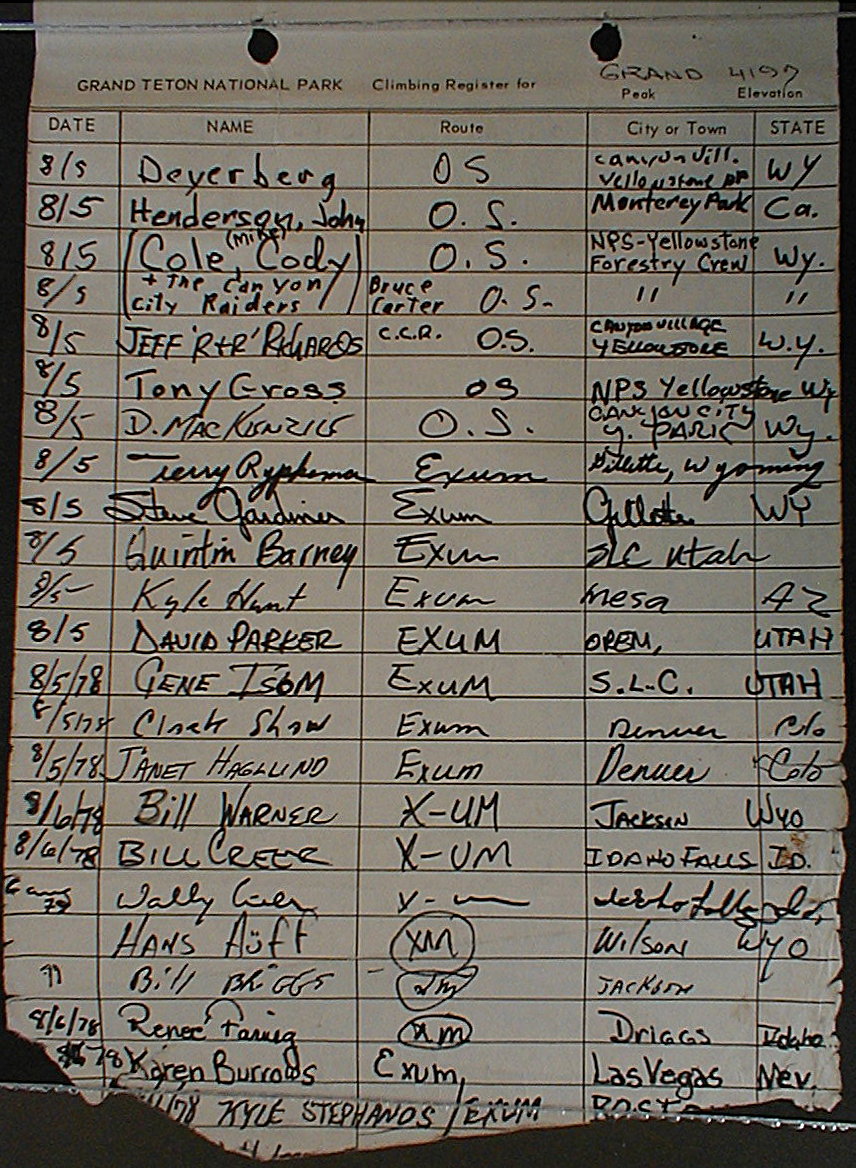 GRAND TETON NATIONAL PARK Climbing Register for GRAND 4197
Peak Elevation
DATE NAME Route City or Town STATE
8/5 Deyerberg OS Canyon Vill. Yellowstone WY
8/5 Henderson, John O.S. Monterey Park Ca.
8/5 (Cole, (Mike) Cody O.S. NPS-Yellowstone Forestry Crew Wy.
8/5 + The Canyon City Raiders) Bruce Carter O.S. " "
8/5 JEFF 'R+R' RICHARDS C.C.R. O.S. CANYON VILLAGE YELLOWSTONE W.Y.
8/5 Tony Gross OS NPS Yellowstone Wy
8/5 D. MACKENZIE O.S. CANYON CITY Y. PARK Wy.
8/5 Terry Exum Gillette, Wyoming
8/5 Steve Gardiner Exum Gillette WY
8/5 Quintin Barney Exum SLC Utah
8/5 Kyle Hunt Exum Mesa AZ
8/5 DAVID PARKER EXUM OREM, UTAH
8/5/78 GENE ISOM EXUM S.L.C. UTAH
8/5/78 Shaw Exum Denver Colo
8/5/78 JANET HAGLUND Exum Denver Colo
8/6/78 Bill WARNER X-UM JACKSON WYO
8/6/78 BILL CREER X-UM IDAHO FALLS ID.
Wally Idaho Falls
HANS XM WILSON WYO
" Bill BRIGGS XM JACKSON
8/6/78 Renee XM Driggs Idaho
78 Karen Burrows Exum, Las Vegas Nev.
/78 KYLE STEPHANOS / EXUM